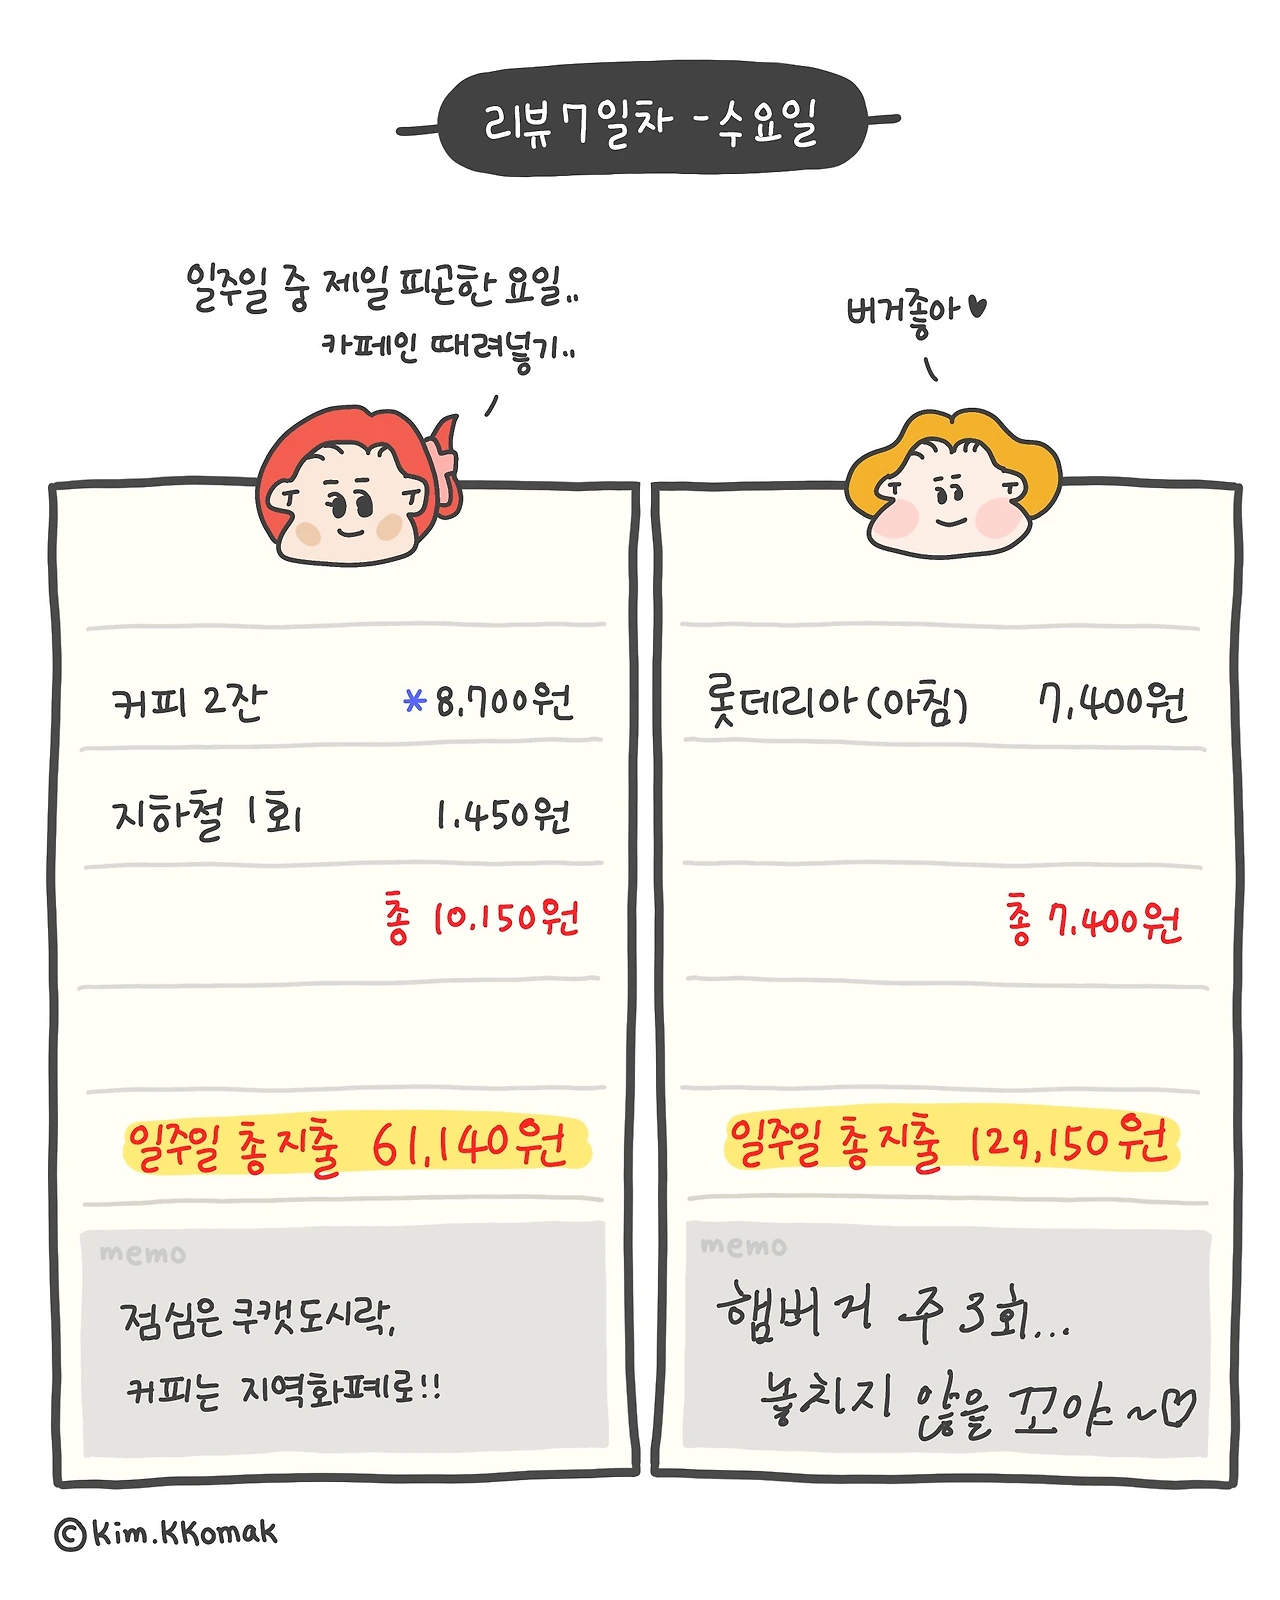 리뷰 7일차 - 수요일
일주일 중 제일 피곤한 요일..
카페인 때려넣기..
버거좋아♥
커피 2잔 *8,700원
지하철 1회 1,450원
총 10,150원
일주일 총 지출 61,140원
memo
점심은 쿠캣도시락,
커피는 지역화폐로!!
롯데리아(아침) 7,400원
총 7,400원
일주일 총 지출 129,150원
memo
햄버거 주 3회...
놓치지 않을 꼬야~♡
©Kim.KKomak